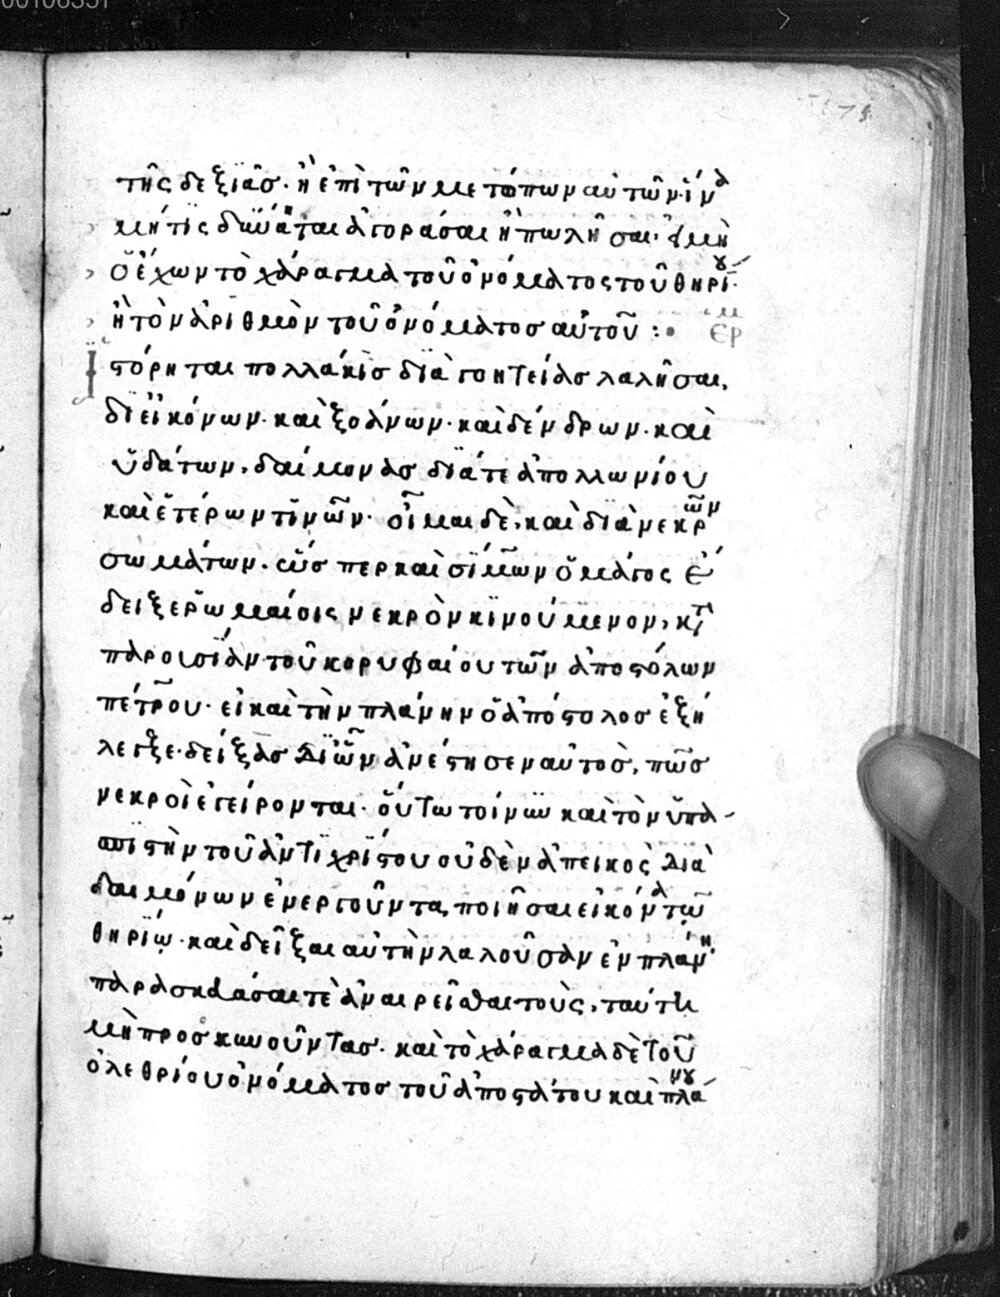 τῆς δεξιᾶσ· ἢ ἐπὶ τῶν μετώπων αὐτῶν· ἵνα
μή τις δύνηται ἀγοράσαι ἢ πωλῆσαι· εἰ μὴ
ὁ ἔχων τὸ χάραγμα τοῦ ὀνόματος τοῦ θηρίου·
ἢ τὸν ἀριθμὸν τοῦ ὀνόματοσ αὐτοῦ :· ἑρμ
Ἱστόρηται πολλάκισ διὰ γοητείασ λαλῆσαι,
δι εἰκόνων· καὶ ξοάνων· καὶ δένδρων· καὶ
ὑδάτων, δαίμονασ διά τε ἀπολλωνίου
καὶ ἑτέρων τινῶν· οἶμαι δὲ, καὶ διὰ νεκρῶν
σωμάτων· ὥσπερ καὶ σίμων ὁ μάγος ἔ
δειξε ῥωμαίοις νεκρὸν κινούμενον, κατὰ
παρουσίαν τοῦ κορυφαίου τῶν ἀποστόλων
πέτρου· εἰ καὶ τὴν πλάνην ὁ ἀπόστολοσ ἐξή
λεγξε· δείξασ δι ὧν ἀνέστησεν αὐτοσ, πῶσ
νεκροὶ ἐγείρονται· οὕτω τοίνυν καὶ τὸν ὑπα
σπιστὴν τοῦ ἀντιχρίστου οὐδὲν ἀπεικὸς διὰ
δαιμόνων ἐνεργοῦντα, ποιῆσαι εἰκόνα τῷ
θηρίῳ· καὶ δεῖξαι αὐτὴν λαλοῦσαν ἐν πλάνη
παρασκευάσαι τὲ ἀναιρεῖσθαι τοὺς, ταύτη
μὴ προσκυνοῦντασ· καὶ τὸ χάραγμα δὲ τοῦ
ὀλεθρίου ὀνόματοσ τοῦ ἀποστάτου καὶ πλάνου